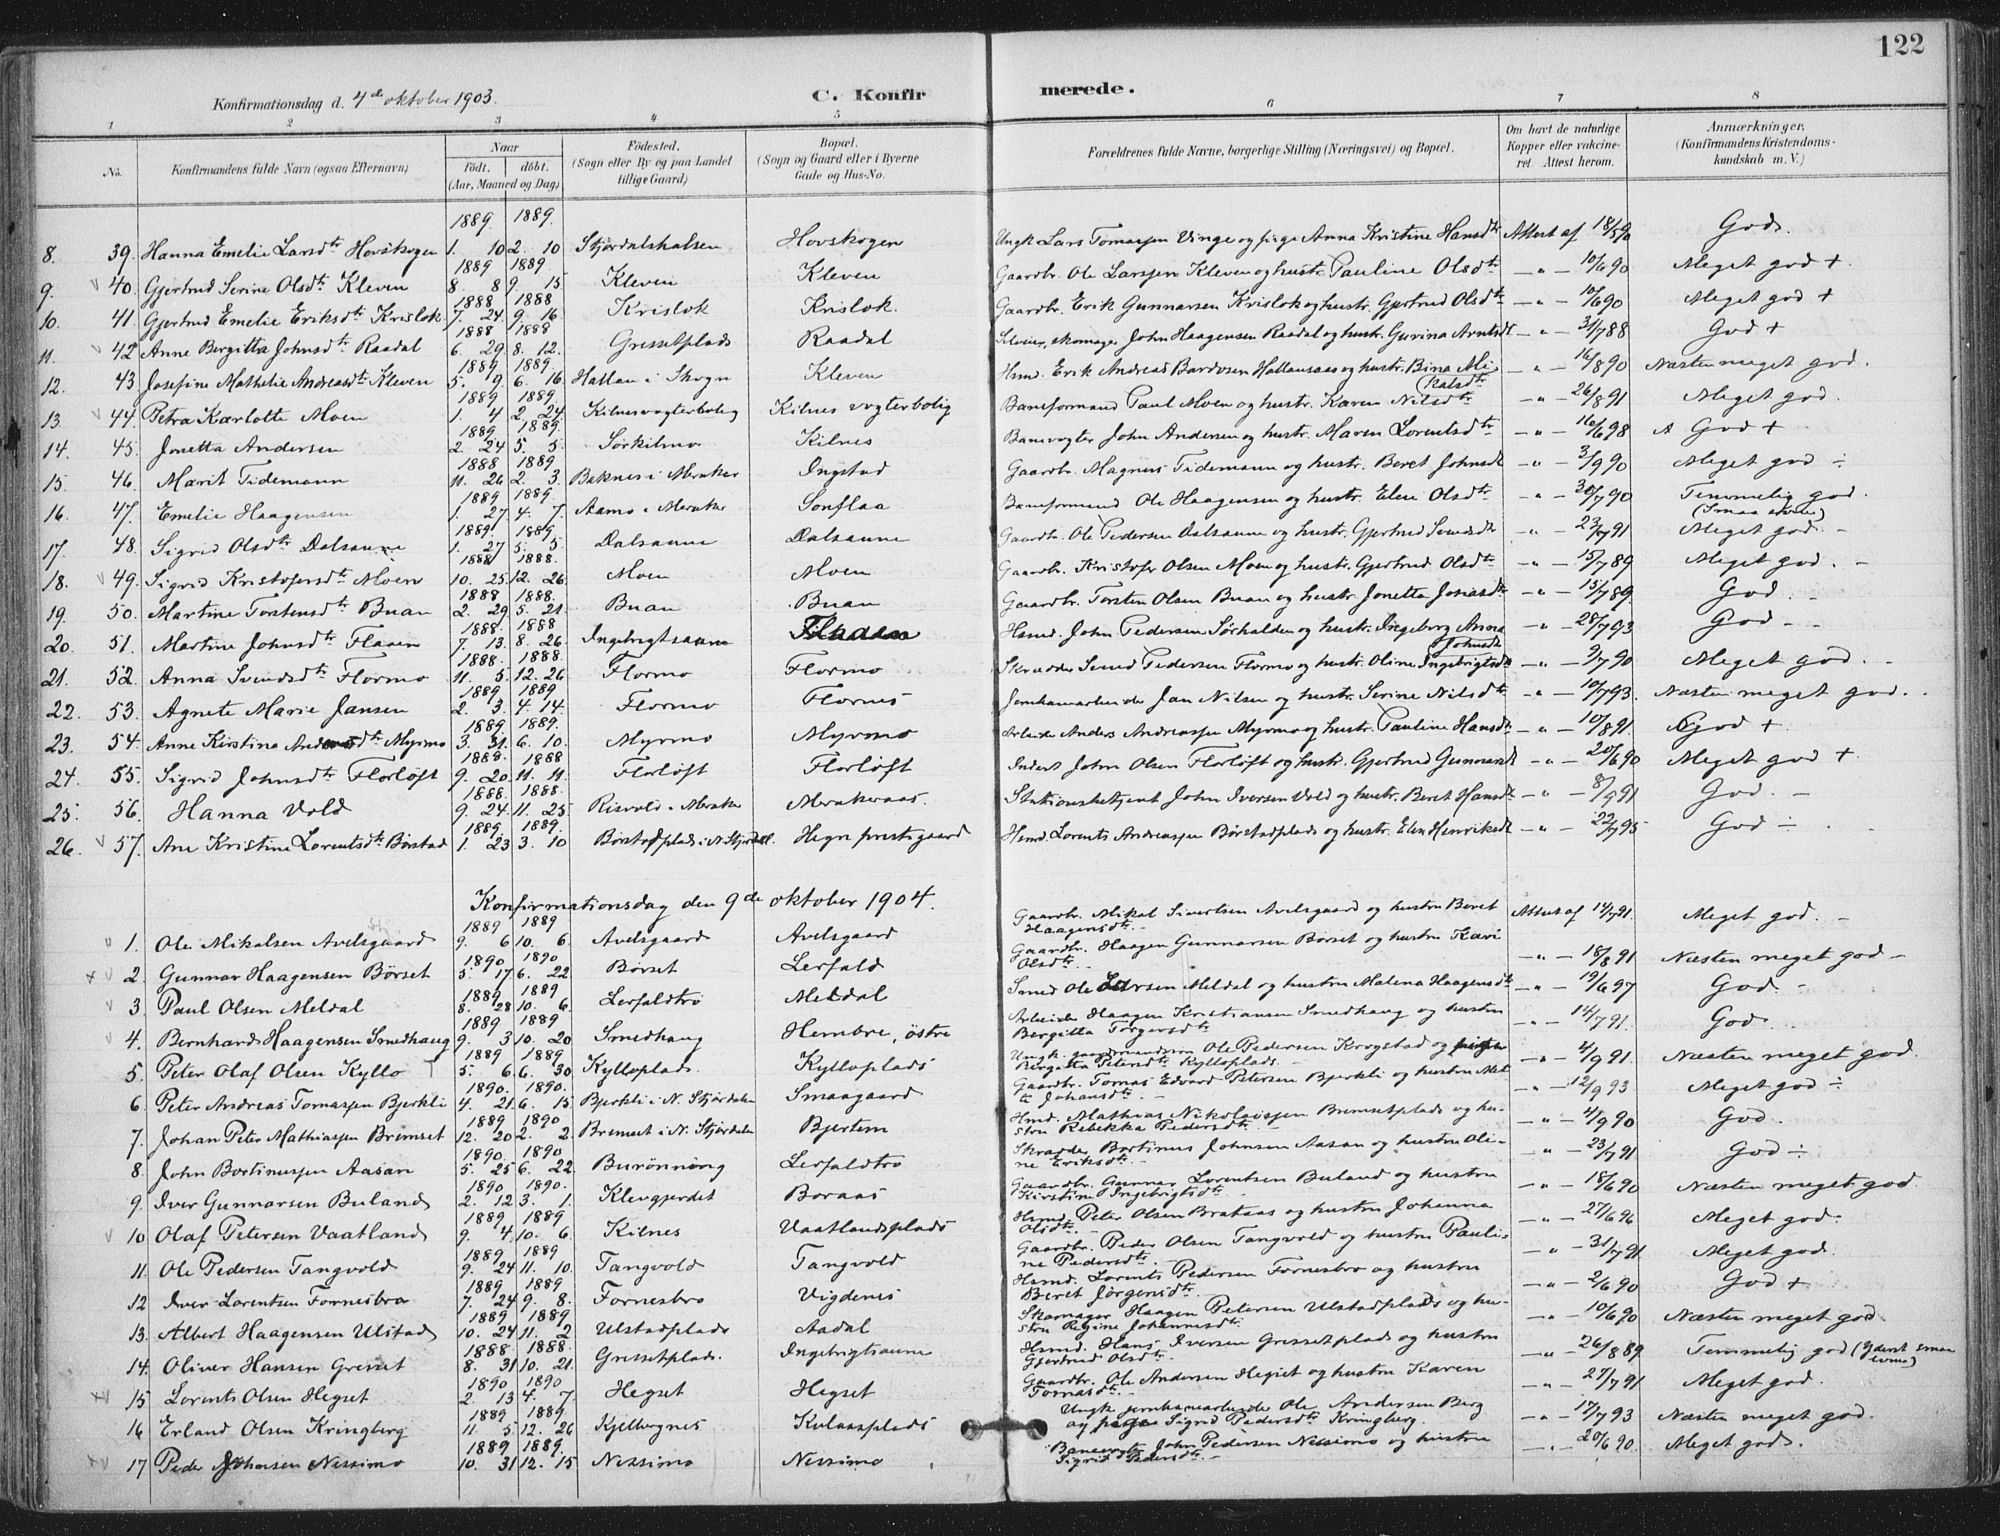 122
Konfirmationsdag d. 4de oktober 1903.
C. Konfirmerede.
1 2 3 4 5 6 7 8
No. Konfirmandens fulde Navn (ogsaa Efternavn) Naar Födt. döbt. (Aar, Maaned og Dag) Födested. (Sogn eller By og paa Landet tillige Gaard) Bopæl. (Sogn og Gaard eller i Byerne Gade og Hus-No. Forældrenes fulde Navne, borgerlige Stilling (Næringsvei) og Bopæl. Om havt de naturlige Kopper eller vakcineret. Attest herom. Anmærkninger. (Konfirmandens Kristendomskundskab m. V.)
1889. 1889.
8. 39. Hanna Emelie Larsdtr Hovskogen 1. 10 2. 10 Stjördalshalsen Hovskogen Ungk Lars Tomassen Vinge og pige Anna Kristine Hansdtr Attest af 18/5 90 God.
1889 1889.
9. v 40. Gjertrud Serine Olsdtr Kleven 8. 8 9. 15 Kleven Kleven Gaardbr. Ole Larssen Kleven og hustr. Pauline Olsdtr —"— 10/6 90 Meget god +
1888 1888
10. 41 Gjertrud Emelie Eriksdtr Krislok 7. 24. 9. 16. Krislok Krislok. Gaardbr. Erik Gunnarsen Krislok og hustr. Gjertrud Olsdtr —"— 10/6 90 Meget god +
1888 1888
11. v 42 Anne Birgitta Johnsdtr Raadal 6. 29 8. 12. Gressetplads Raadal John Haagensen Raadal og hustr. Gurina Arntsdtr —"— 31/7 88 God +
1889 1889
12. 43. Josefine Mathelie Andreasdtr Kleven 5. 9. 6. 16 Hallan i Skogn Kleven Hsmd. Erik Andreas Bardosen Hallansaas og hustr. Bina Mikalsdtr —"— 16/8 90 Næsten meget god.
1889 1889.
13. v 44. Petra Karlotte Moen 1. 4 2. 24 Kilnesvogterbolig Kilnes vogterbolig Baneformand Paul Moen og hustr. Karen Nilsdtr —"— 26/8 91 Meget god.
1889 1889.
14. 45. Jonetta Andersen 2. 24 5. 5. Sörkilmo Kilnes Banevogter John Andersen og hustr. Maren Lorentsdtr —"— 16/6 98 God +
1888 1889
15. 46. Marit Tidemann 11. 26 2. 3. Baknes i Meraker Ingstad Gaardbr. Magnus Tidemann og hustr. Beret Johnsdtr —"— 3/9 90 Meget god ÷
1889 1889.
16. 47. Emelie Haagensen 1. 27 4. 7. Aamo i Meraker Sonflaa Baneformand Ole Haagensen og hustr. Elen Olsdtr —"— 30/7 90 Temmelig god. (Smaa evner)
1889. 1889
17. 48. Sigrid Olsdtr Dalsaune 1. 27 5. 5. Dalsaune Dalsaune Gaardbr. Ole Pedersen Dalsaune og hustr. Gjertrud Svendsdtr —"— 23/7 91 Meget god. -
1888 1888.
18. v 49. Sigrid Kristofersdtr Moen 10. 25. 12. 26. Moen Moen Gaardbr. Kristofer Olsen Moen og hustr. Gjertrud Olsdtr —"— 15/7 89 Meget god. -
1888 1888.
19. 50. Martine Torstensdtr Buan 2. 29 5. 21. Buan Buan Gaardbr. Torsten Olsen Buan og hustr. Jonetta Josiasdtr —"— 15/7 89. God.
1888. 1888
20. 51. Martine Johnsdtr Flaaen 7. 13. 8. 26 Ingebrigtsaune Flaaen Hsmd. John Pedersen Sörhalden og hustr. Ingeborg Anna Johnsdtr —"— 28/7 93 God -
1888. 1888.
21. 52. Anna Svendsdtr Flormo 11. 5. 12. 26 Flormo Flormo Skrædder Svend Pedersen Flormo og hustr. Oline Ingebrigtsdtr —"— 9/7 90 Meget god. -
1889 1889
22. 53. Agnete Marie Jansen 2. 3. 4. 14. Flormo Flornes Jernbanearbeider Jan Nilsen og hustr. Serine Nilsdtr —"— 10/7 93. Næsten meget god.
1889 1889.
23. 54. Anne Kirstina Andersdtr Myrmo 3. 31 6. 10. Myrmo Myrmo Arbeider Anders Andreassen Myrmo og hustr. Pauline Hansdtr —"— 10/8 91. God +
1888. 1888
24. 55. Sigrid Johnsdtr Florlöft 9. 20 11. 11. Florlöft Florlöft Inderst John Olsen Florlöft og hustr. Gjertrud Gunnarsdtr —"— 20/6 90 Meget god +
1888 1888.
25. 56. Hanna Vold 9. 24. 11. 25 Risvold i Meraker Merakeraas. Stationsbetjent John Iversen Vold og hustr. Beret Hansdtr —"— 8/9 91 God. -
1889 1889.
26. v 57. Ane Kristine Lorentsdtr Börstad 1. 23 3. 10 Börstadplads i N. Stjördal. Hegre prestegaard Hsmd. Lorents Andreassen Börstadplads og hustr. Elen Henriksdtr —"— 22/7 95 God ÷
Konfirmationsdag den 9de oktober 1904.
1889 1889
v 1. Ole Mikalsen Avelsgaard 9. 6 10. 6. Avelsgaard Avelsgaard Gaardbr. Mikal Sivertsen Avelsgaard og hustru Beret Haagensdtr Attest af 14/7 91. Meget god. -
1890 1890
+ v 2. Gunnar Haagensen Börset 5. 17 6. 22 Börset Lerfald Gaardbr. Haagen Gunnarsen Börset og hustru Kari Olsdtr —"— 18/8 91 Næsten meget god -
1889 1889
v 3 Paul Olsen Meldal 8. 28 10. 6. Lerfaldtrö Meldal Smed Ole Larsen Meldal og hustru Malena Haagensdtr —"— 19/6 97 God. -
1889 1889
v 4. Bernhard Haagensen Smedhaug 9. 3 10. 20 Smedhaug Hembre, östre Arbeider Haagen Kristiansen Smedhaug og hustru Bergitta Torgersdtr —"— 14/7 91. God.
1889 1889
5. Peter Olaf Olsen Kyllo 5. 6 6. 30 Kylloplads Kylloplads Ungk. gaardmandssön Ole Pedersen Krogstad og pige Birgitta Petersdtr Kylloplads. —"— 4/9 91 Næsten meget god.
1890 1890.
6. Peter Andreas Tomassen Bjerkli 4. 21 6. 15 Bjerkli i N. Stjördalen Smaagaard Gaardbr. Tomas Edvard Petersen Bjerkli og hustru Mette Johansdtr —"— 12/9 93 Meget god ÷
1889 1890
7. Johan Peter Mathiassen Bremset 12. 20 2. 2. Bremset i N. Stjördalen Bjertem Hsmd. Mathias Nikolaissen Bremsetplads og hustru Rebekka Pedersdtr —"— 4/9 90 God.
1890. 1890
8. John Bortinussen Aasan 5. 25 6. 22 Burönning Lerfaldtrö Skrædder Bortinus Johnsen Aasan og hustru Oline Eriksdtr —"— 23/7 91 God ÷
1890 1890.
9. Iver Gunnarsen Buland 2. 12 3. 1. Klevgjerdet Boraas Gaardbr. Gunnar Lorentsen Buland og hustru Kirstine Ingebrigtsdtr —"— 18/6 90 Næsten meget god.
1889 1889
v 10 Olaf Petersen Vaatland 9. 4. 10. 6. Kilnes Vaatlandsplads Hsmd. Peter Olsen Brataas og hustru Johanna Olsdtr —"— 27/6 96 Meget god.
1889 1889
11. Ole Pedersen Tangvold 9. 24 11. 10. Tangvold Tangvold Gaardbr. Peder Olsen Tangvold og hustru Pauline Pedersdtr —"— 31/7 91 Meget god.
1889 1889
12 Iver Lorentsen Fornesbro 7. 24 9. 8. Fornesbro Vigdenes Hsmd. Lorents Pedersen Fornesbro og hustru Beret Jörgensdtr —"— 2/6 90 God +
1889 1889
13. Albert Haagensen Ulstad 10. 24 11. 2 Ulstadplads Aadal Skomager Haagen Petersen Ulstadplads og hustru Regine Johannesdtr —"— 10/6 90 Næsten meget god.
1888 1888
14. Oliver Hansen Gresset 8. 31 10. 21. Gressetplads. Ingebrigtsaune Hsmd. Hans Iversen Gressetplads og hustru Gjertrud Olsdtr —"— 26/8 89 Temmelig god (Yderst smaa evner)
1890 1890
+v 15 Lorents Olsen Hegset 2. 13 4. 7. Hegset Hegset Gaardbr. Ole Andersen Hegset og hustru Karen Tomasdtr —"— 27/7 91 Meget god.
1889 1889
16 Erland Olsen Kringberg 11. 5. 12. 26 Kjelbergnes Kulaasplads Ungk jernbanearbeider Ole Andersen Berg og pige Sigrid Pedersdtr Kringberg. —"— 17/7 93 Næsten meget god.
1889 1889.
+v 17 Peder Johnsen Nessimo 10. 31 12. 15 Nessimo Nessimo Banevogter John Pedersen Nessimo og hustru Sigrid Pedersdtr —"— 20/6 90. Meget god.